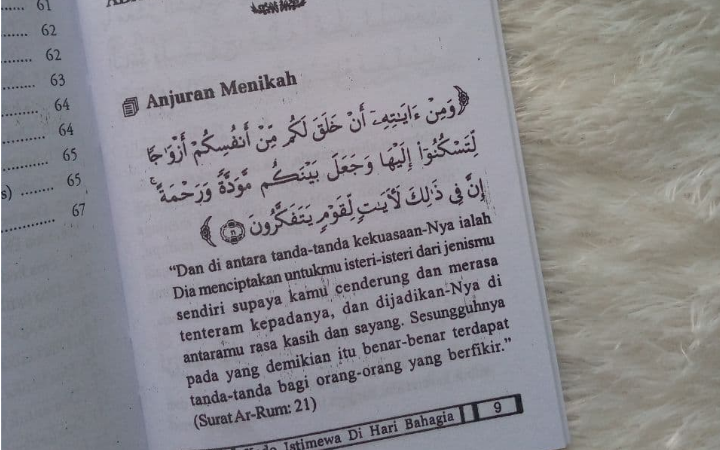 61
62
62
63
64
64
65
s) ........ 65
67
Anjuran Menikah
﴿وَمِنْ ءَايَـٰتِهِۦٓ أَنْ خَلَقَ لَكُم مِّنْ أَنفُسِكُمْ أَزْوَٰجًا
لِّتَسْكُنُوٓا۟ إِلَيْهَا وَجَعَلَ بَيْنَكُم مَّوَدَّةً وَرَحْمَةً ۚ
إِنَّ فِى ذَٰلِكَ لَـَٔايَـٰتٍ لِّقَوْمٍ يَتَفَكَّرُونَ ﴾
“Dan di antara tanda-tanda kekuasaan-Nya ialah
Dia menciptakan untukmu isteri-isteri dari jenismu
sendiri supaya kamu cenderung dan merasa
tenteram kepadanya, dan dijadikan-Nya di
antaramu rasa kasih dan sayang. Sesungguhnya
pada yang demikian itu benar-benar terdapat
tanda-tanda bagi orang-orang yang berfikir.”
(Surat Ar-Rum: 21)
Istimewa Di Hari Bahagia 9